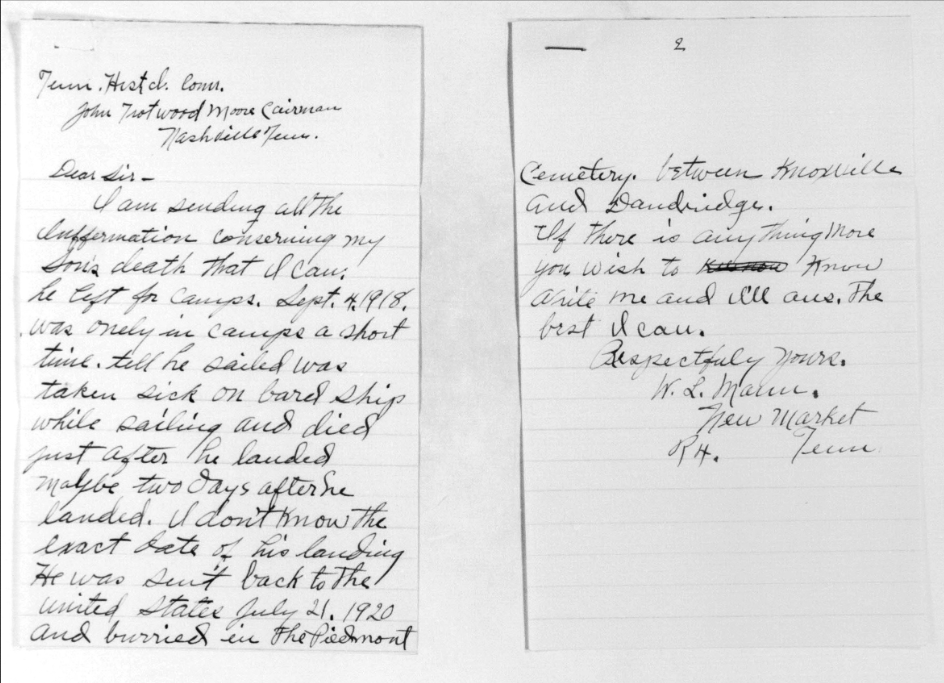 Tenn. Histcl. Com.
John Trotwood Moore Cairman
Nashville Tenn.
Dear Sir -
I am sending all the
Inffermation conserning my
Son's death that I can.
he left for camps. Sept. 4, 1918.
was onely in camps a short
time. tell he sailed was
taken sick on bard ship
while sailing and died
just after he landed
maybe two days after he
landed. I don't know the
exact date of his landing
He was sent back to the
united states July 21, 1920
and burried in the Piedmont
2
Cemetery. between Knoxville
and Dandridge.
If there is anything more
you wish to know
write me and i'll ans. the
best I can.
Respectfuly yours.
W. L. Mann.
New Market
R4. Tenn